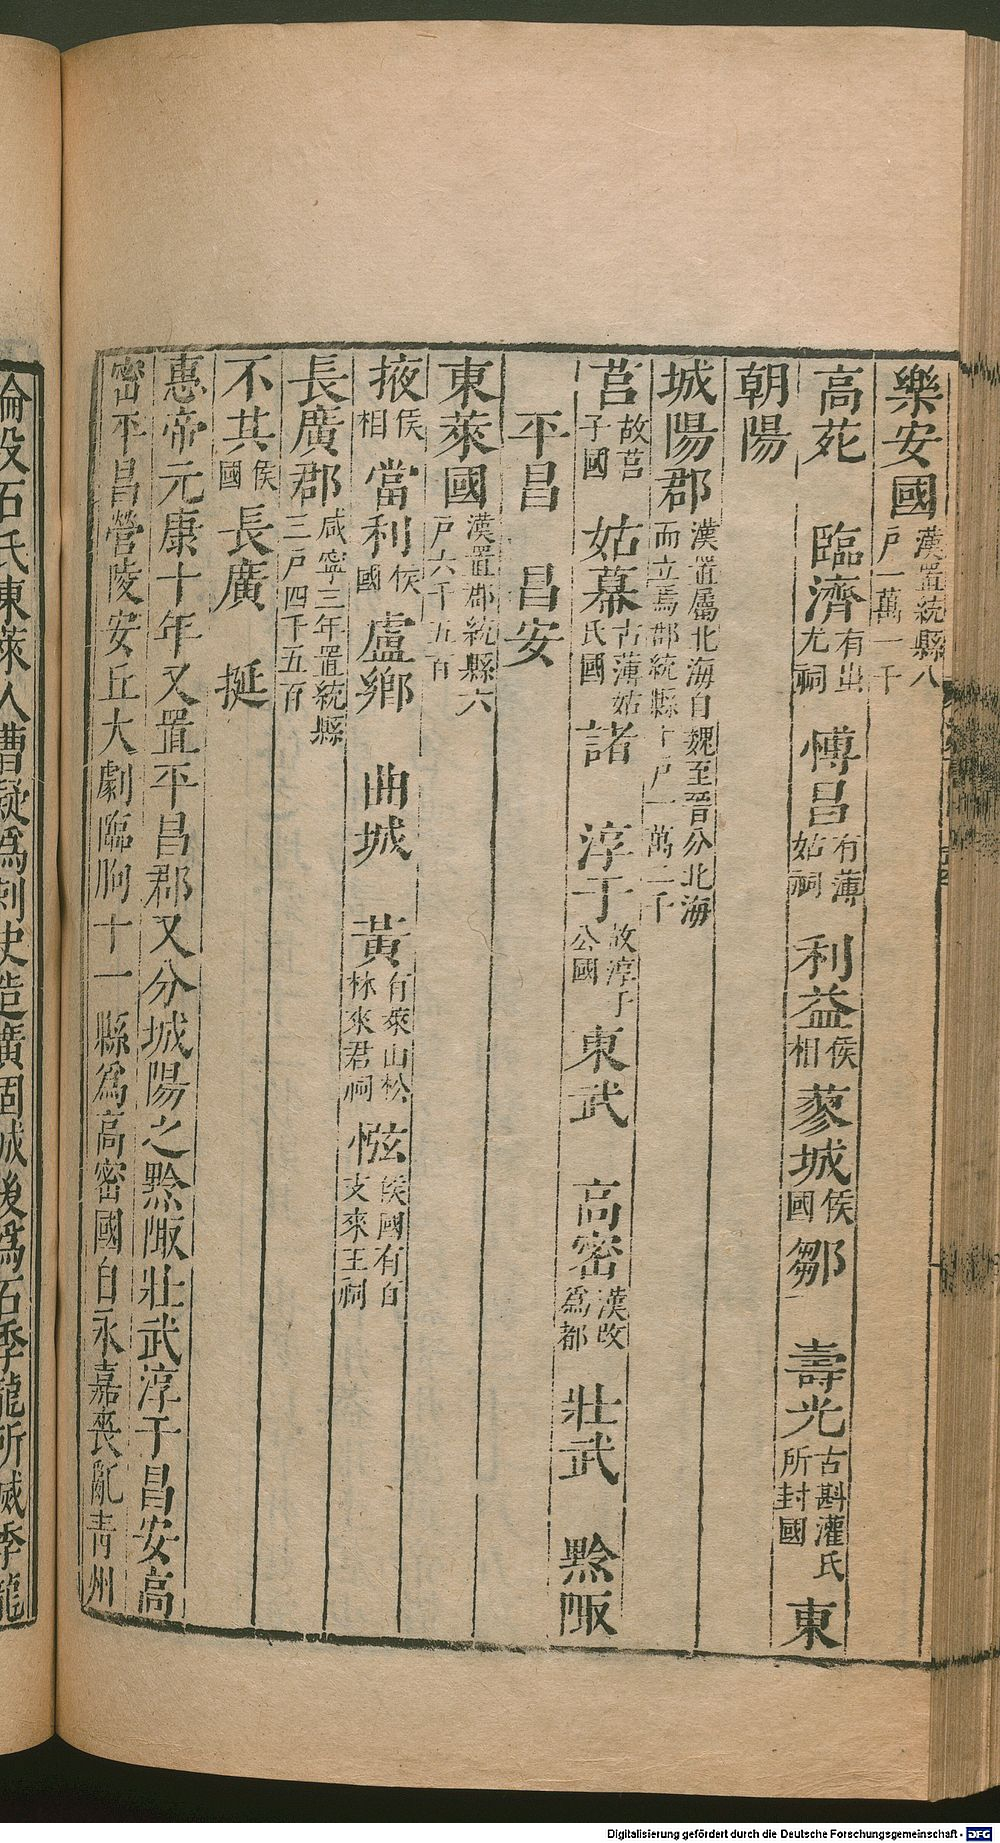 樂安國漢置統縣八戶一萬一千
高苑　臨濟有蚩尤祠　博昌有薄姑祠　利益侯相蓼城侯國鄒　壽光古斟灌氏所封國　東
朝陽
城陽郡漢置屬北海自魏至晉分北海而立焉郡統縣十戶一萬二千
莒故莒子國　姑幕古薄姑氏國　諸　淳于故淳于公國　東武　高密漢改爲郡　壯武　黔陬
平昌　昌安
東萊國漢置郡統縣六戶六千五百
掖侯相　當利侯國　盧鄉　曲城　黃有萊山松林萊君祠　惤侯國有百支萊王祠
長廣郡咸寧三年置統縣三戶四千五百
不其侯國　長廣　挺
惠帝元康十年又置平昌郡又分城陽之黔陬壯武淳于昌安高
密平昌營陵安丘大劇臨朐十一縣爲高密國自永嘉喪亂青州
淪沒石氏東萊人曹嶷爲刺史造廣固城後爲石季龍所滅季龍
Digitalisierung gefördert durch die Deutsche Forschungsgemeinschaft - DFG